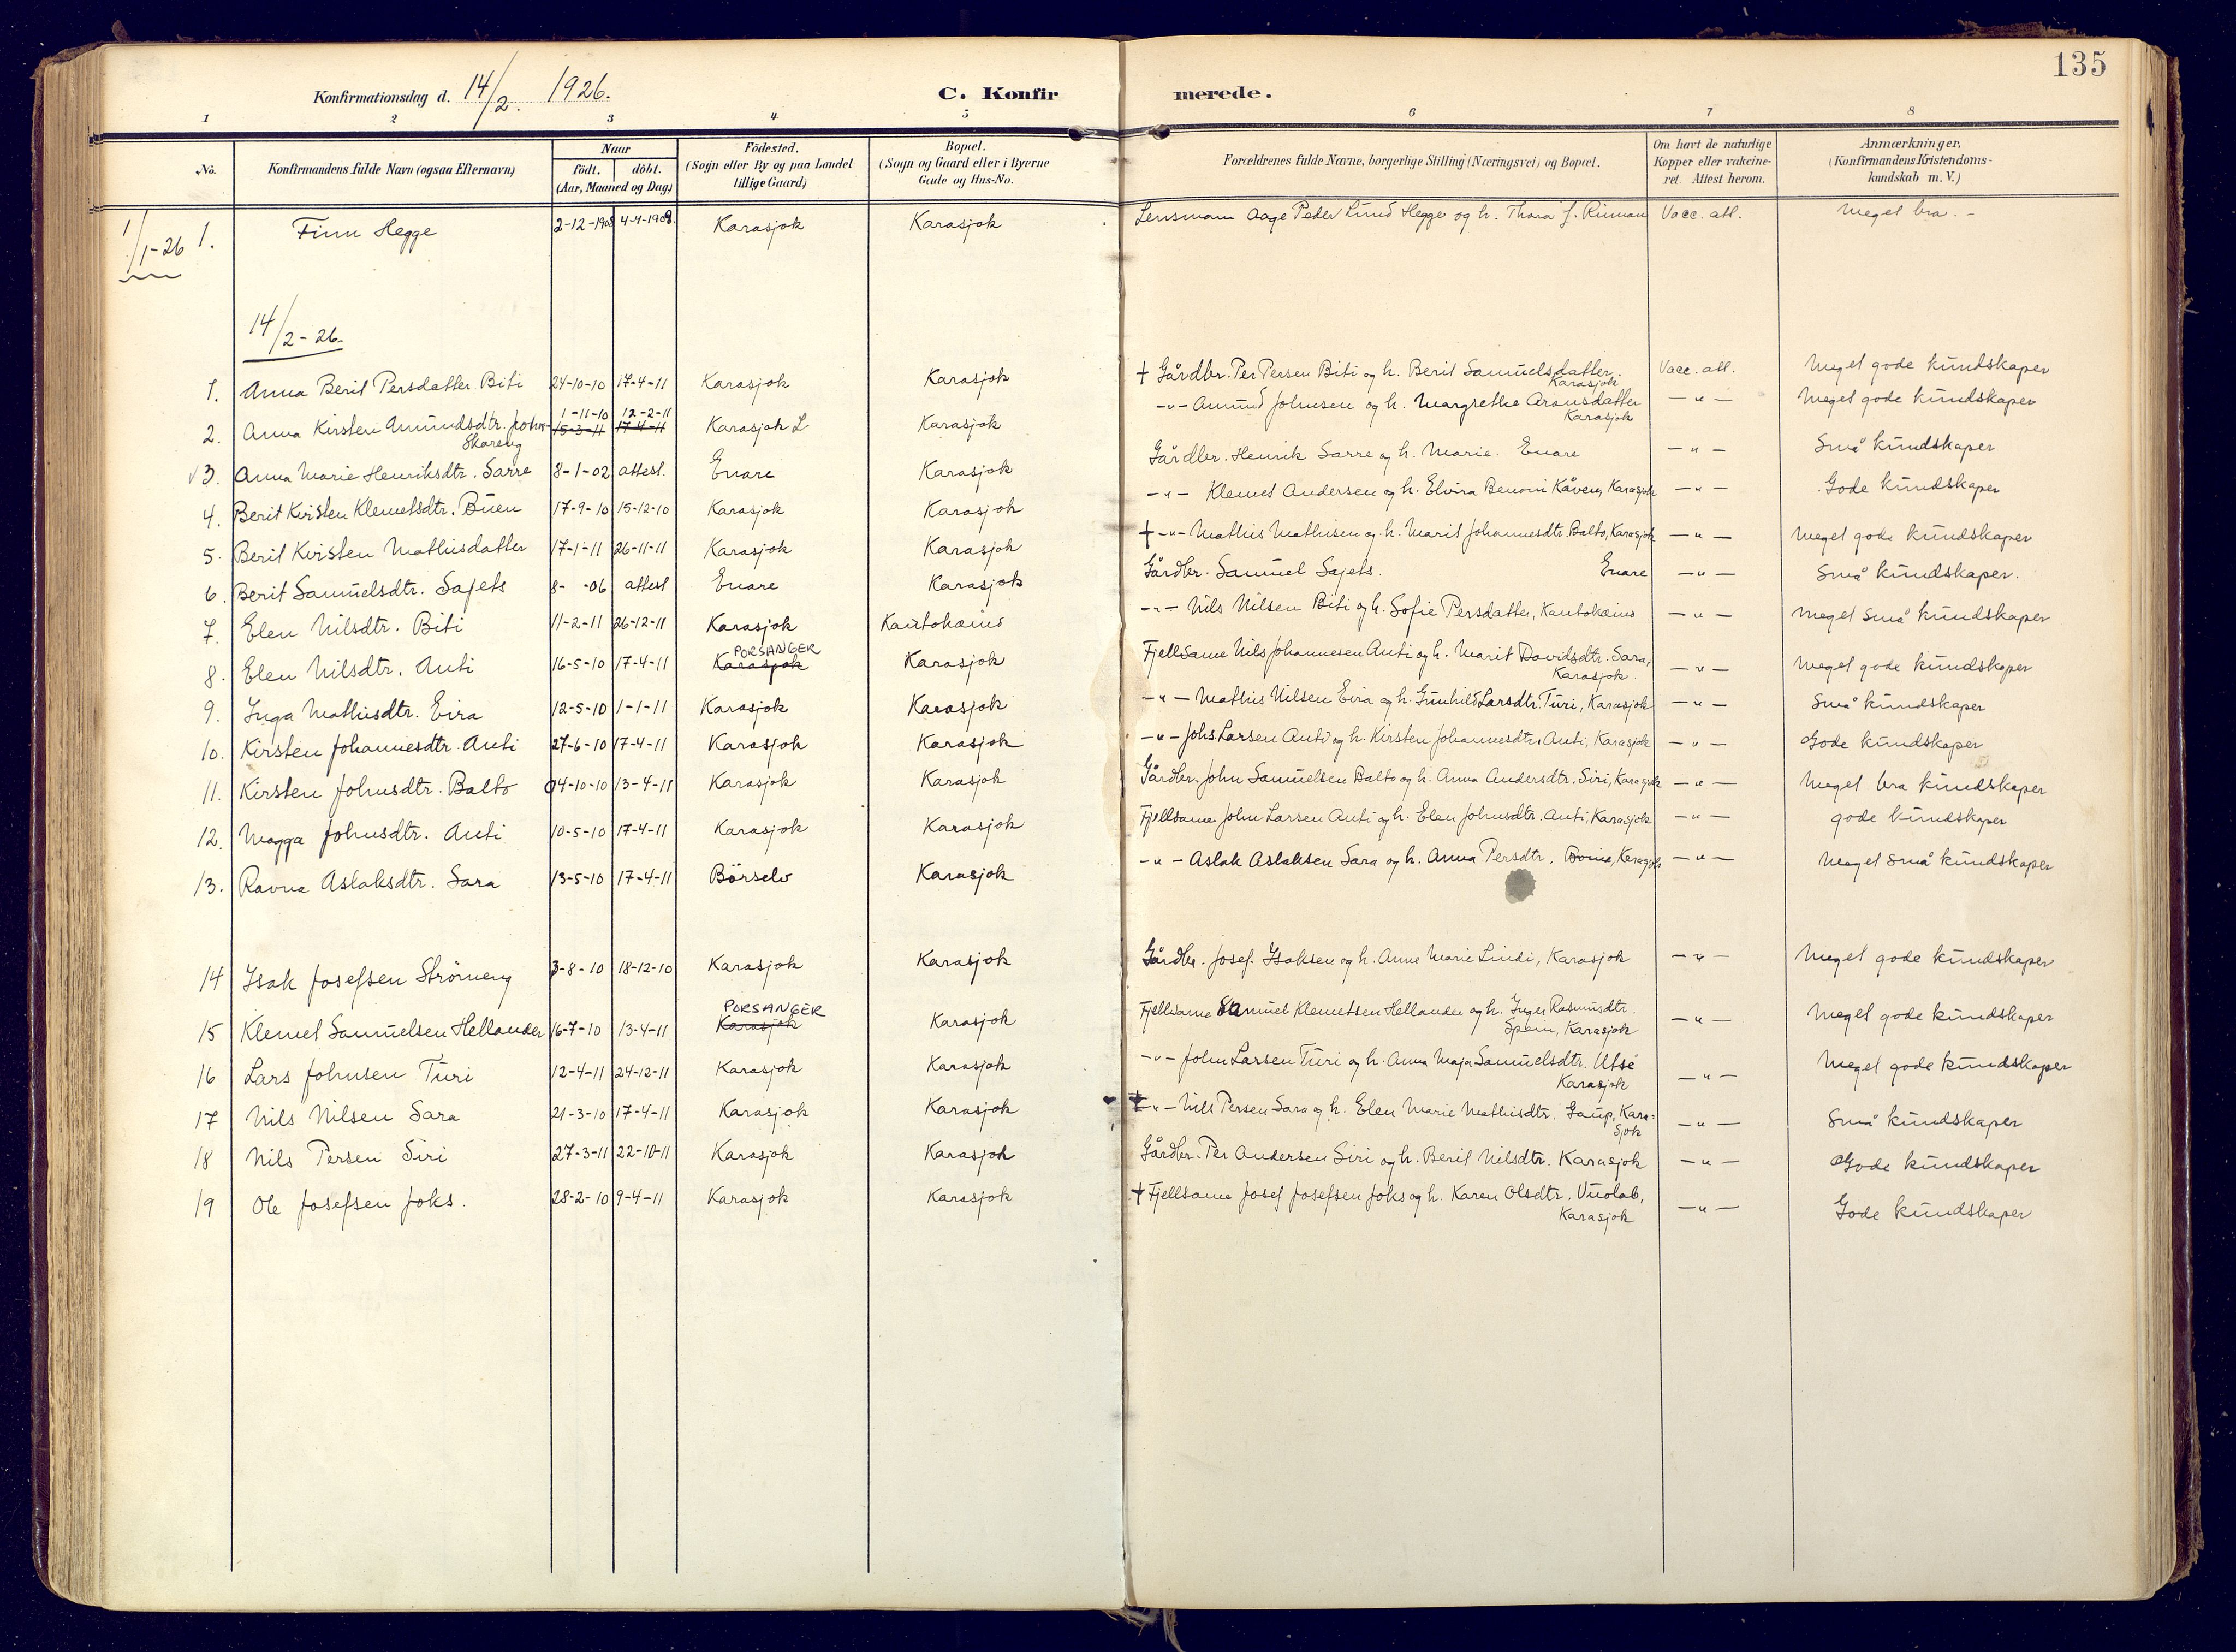 135
Konfirmationsdag d. 14/2. 1926. C. Konfirmerede.
1 2 3 4 5 6 7 8
No. Konfirmandens fulde Navn (ogsaa Efternavn) Naar födt. döbt. (Aar, Maaned og Dag) Födested. (Sogn eller By og paa Landet tillige Gaard) Bopæl. (Sogn og Gaard eller i Byerne Gade og Hus-No. Forældrenes fulde Navne, borgerlige Stilling (Næringsvei) og Bopæl. Om havt de naturlige Kopper eller vakcineret. Attest herom. Anmærkninger. (Konfirmandens Kristendomskundskab m. V.)
1/1-26 1. Finn Hegge 2-12-1908 4-4-1909. Karasjok Karasjok Lensmann Aage Peder Lund Hegge og h. Thora f. Rinnan Vacc. att. Meget bra. -
14/2-26.
1. Anna Berit Persdatter Biti 24-10-10 17-4-11 Karasjok Karasjok + Gårdbr. Per Persen Biti og h. Berit Samuelsdatter. Karasjok Vacc. att. Meget gode kundskaper
2. Anna Kirsten Amundsdtr. Johns- Skareng 1-11-10 12-2-11 15-3-11 17-4-11 Karasjok L Karasjok -"- Amund Johnsen og h. Margrethe Aronsdatter Karasjok -"- Meget gode kundskaper
√3. Anna Marie Henriksdtr. Sarre 8-1-02 attest. Enare Karasjok Gårdbr. Henrik Sarre og h. Marie. Enare -"- Små kundskaper
4. Berit Kirsten Klemetsdtr. Buen 17-9-10 15-12-10 Karasjok Karasjok -"- Klemet Andersen og h. Elvira Benoni Kåven, Karasjok -"- Gode kundskaper
5. Berit Kirsten Mathisdatter 17-1-11 26-11-11 Karasjok Karasjok + -"- Mathis Mathisen og h. Marit Johannesdtr. Balto, Karasjok -"- Meget gode kundskaper
6. Berit Samuelsdtr. Sajets 8- -06 attest Enare Karasjok Gårdbr. Samuel Sajets. Enare -"- Små kundskaper.
7. Elen Nilsdtr. Biti 11-2-11 26-12-11 Karasjok Kautokeino -"- Nils Nilsen Biti og h. Sofie Persdatter, Kautokeino -"- Meget små kundskaper
8. Elen Nilsdtr. Anti 16-5-10 17-4-11 PORSANGER Karasjok Karasjok Fjellsame Nils Johannesen Anti og h. Marit Davidsdtr. Sara, Karasjok. -"- Meget gode kundskaper
9. Inga Mathisdtr. Eira 12-5-10 1-1-11 Karasjok Karasjok -"- Mathis Nilsen Eira og h. Gunhild Larsdtr. Turi, Karasjok -"- Små kundskaper
10. Kirsten Johannesdtr. Anti 27-6-10 17-4-11 Karasjok Karasjok -"- Johs Larsen Anti og h. Kirsten Johannesdtr. Anti, Karasjok -"- Gode kundskaper
11. Kirsten Johnsdtr. Balto 04-10-10 13-4-11 Karasjok Karasjok Gårdbr. John Samuelsen Balto og h. Anna Andersdtr. Siri, Karasjok -"- Meget bra kundskaper
12. Magga Johnsdtr. Anti 10-5-10 17-4-11 Karasjok Karasjok Fjellsame John Larsen Anti og h. Elen Johnsdtr. Anti, Karasjok -"- gode kundskaper
13. Ravna Aslaksdtr. Sara 13-5-10 17-4-11 Börselv Karasjok -"- Aslak Aslaksen Sara og h. Anna Persdtr. Boine, Karasjok -"- Meget små kundskaper
14 Isak Josefsen Strömeng 3-8-10 18-12-10 Karasjok Karasjok Gårdbr. Josef Isaksen og h. Anne Marie Lindi, Karasjok -"- Meget gode kundskaper
15 Klemet Samuelsen Hellander 16-7-10 13-4-11 PORSANGER Karasjok Karasjok Fjellsame Samuel Klemetsen Hellander og h. Inger Rasmusdtr. Spein, Karasjok -"- Meget gode kundskaper
16 Lars Johnsen Turi 12-4-11 24-12-11 Karasjok Karasjok -"- John Larsen Turi og h. Anna Maja Samuelsdtr. Utse Karasjok -"- Meget gode kundskaper
17 Nils Nilsen Sara 21-3-10 17-4-11 Karasjok Karasjok + -"- Nils Persen Sara og h. Elen Marie Mathisdtr. Gaup, Karasjok -"- Små kundskaper
18 Nils Persen Siri 27-3-11 22-10-11 Karasjok Karasjok Gårdbr. Per Andersen Siri og h. Berit Nilsdtr. Karasjok -"- Gode kundskaper
19 Ole Josefsen Joks. 28-2-10 9-4-11 Karasjok Karasjok + Fjellsame Josef Josefsen Joks og h. Karen Olsdtr. Vuolab, Karasjok -"- Gode kundskaper